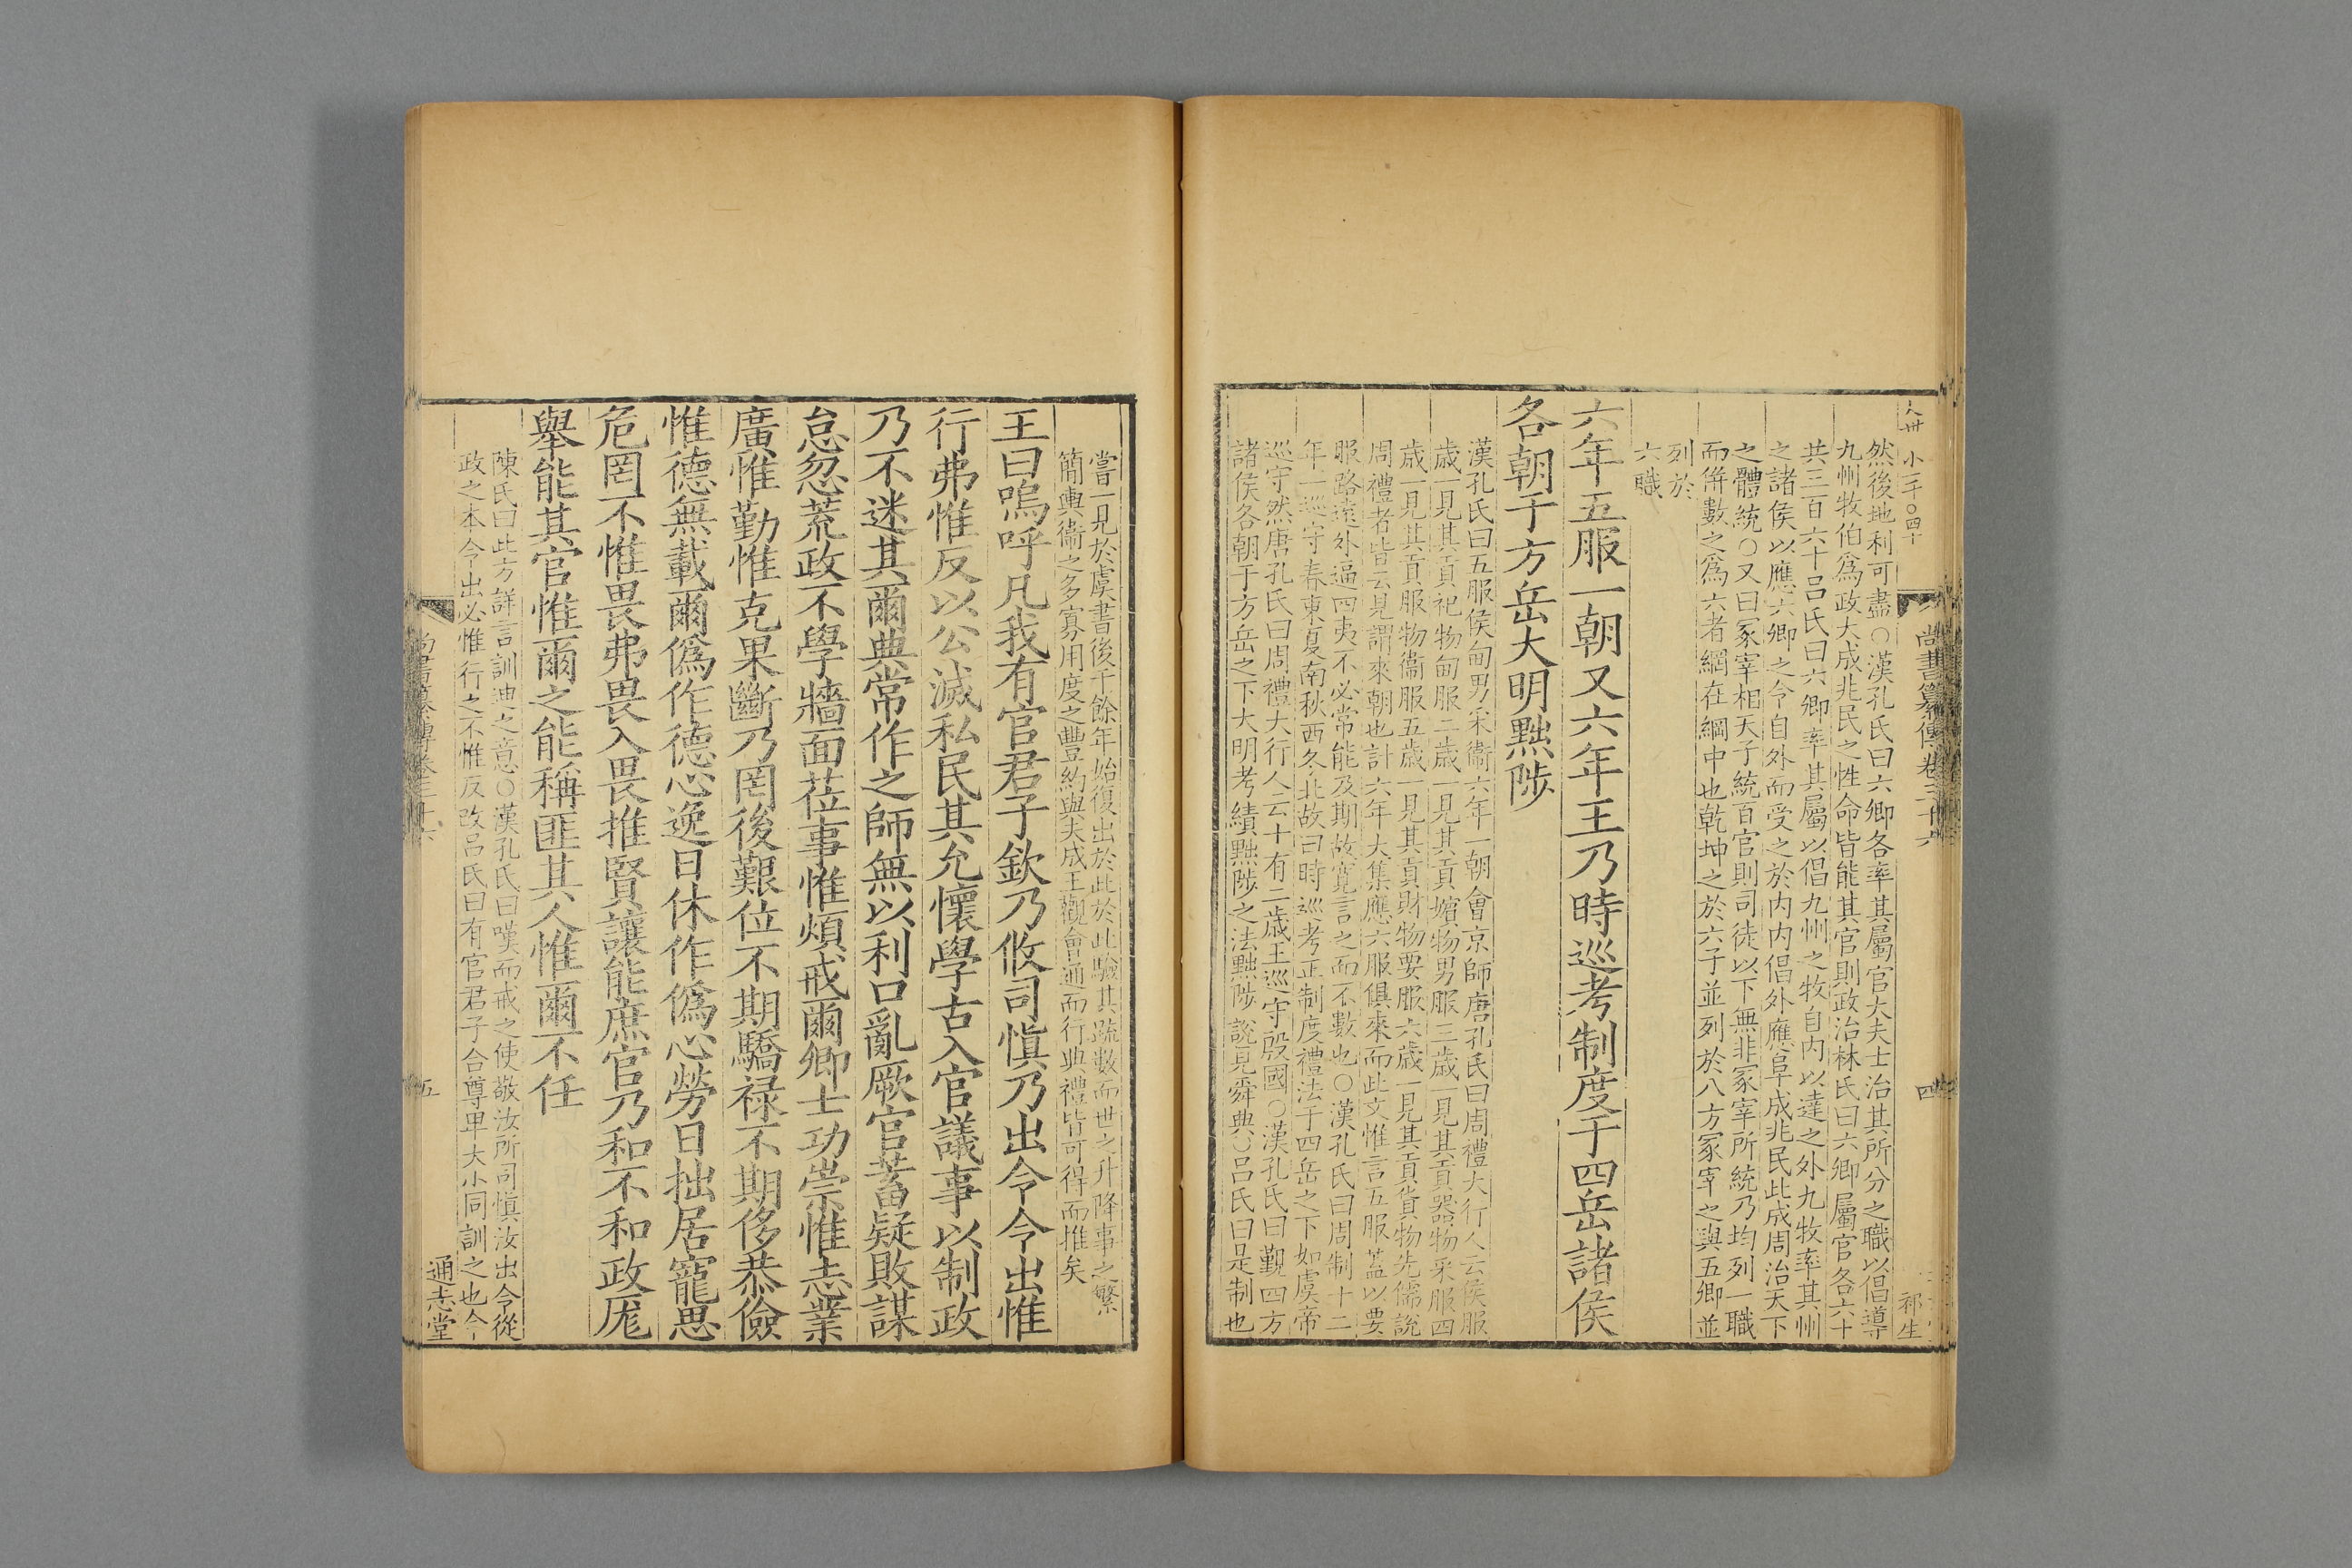 尚書纂傳卷三十六
四
祁生
然後地利可盡○漢孔氏曰六卿各率其屬官大夫士治其所分之職以倡導
九州牧伯爲政大成兆民之性命皆能其官則政治林氏曰六卿屬官各六十
共三百六十呂氏曰六卿率其屬以倡九州之牧自內以達之外九牧率其州
之諸侯以應六卿之令自外而受之於內內倡外應阜成兆民此成周治天下
之體統○又曰冢宰相天子統百官則司徒以下無非冢宰所統乃均列一職
而倂數之爲六者綱在綱中也乾坤之於六子並列於八方冢宰之與五卿並
列於
六職
六年五服一朝又六年王乃時巡考制度于四岳諸侯
各朝于方岳大明黜陟
漢孔氏曰五服侯甸男采衞六年一朝會京師唐孔氏曰周禮大行人云侯服
歲一見其貢祀物甸服二歲一見其貢嬪物男服三歲一見其貢器物采服四
歲一見其貢服物衞服五歲一見其貢財物要服六歲一見其貢貨物先儒說
周禮者皆云見謂來朝也計六年大集應六服俱來而此文惟言五服蓋以要
服路遠外逼四夷不必常能及期故寬言之而不數也○漢孔氏曰周制十二
年一巡守春東夏南秋西冬北故曰時巡考正制度禮法于四岳之下如虞帝
巡守然唐孔氏曰周禮大行人云十有二歲王巡守殷國○漢孔氏曰覲四方
諸侯各朝于方岳之下大明考績黜陟之法黜陟說見舜典○呂氏曰是制也
嘗一見於虞書後千餘年始復出於此於此驗其疏數而世之升降事之繁
簡輿衞之多寡用度之豐約與夫成王觀會通而行典禮皆可得而推矣
王曰嗚呼凡我有官君子欽乃攸司愼乃出令令出惟
行弗惟反以公滅私民其允懷學古入官議事以制政
乃不迷其爾典常作之師無以利口亂厥官蓄疑敗謀
怠忽荒政不學牆面莅事惟煩戒爾卿士功崇惟志業
廣惟勤惟克果斷乃罔後艱位不期驕祿不期侈恭儉
惟德無載爾僞作德心逸日休作僞心勞日拙居寵思
危罔不惟畏弗畏入畏推賢讓能庶官乃和不和政厖
舉能其官惟爾之能稱匪其人惟爾不任
陳氏曰此方詳言訓迪之意○漢孔氏曰嘆而戒之使敬汝所司愼汝出令從
政之本令出必惟行之不惟反改呂氏曰有官君子合尊卑大小同訓之也令
尚書纂傳卷三十六
五
通志堂